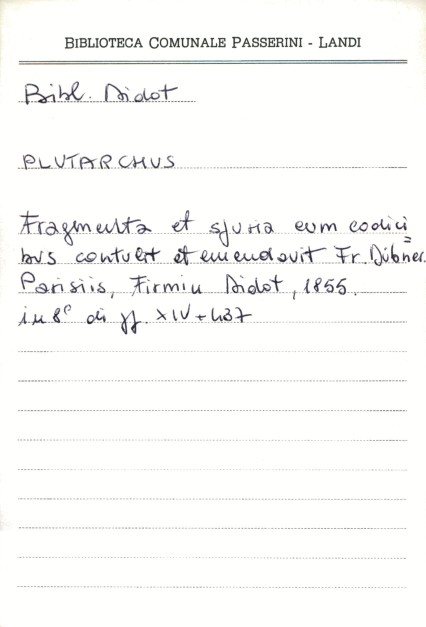 BIBLIOTECA COMUNALE PASSERINI - LANDI
Bibl. Didot
PLUTARCHUS
Fragmenta et spuria cum codici=
bus contulit et emendavit Fr. Dübner.
Parisiis, Firmin Didot, 1855.
in 8° di pp. XIV+137